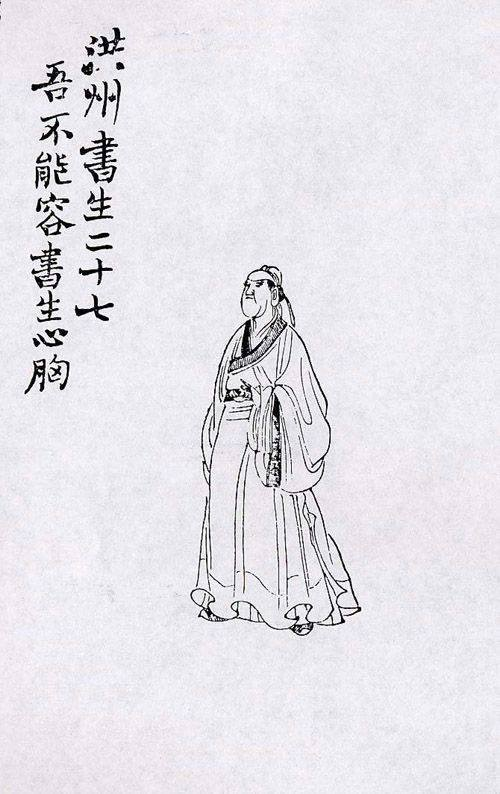 洪州書生二十七
吾不能容書生心胸